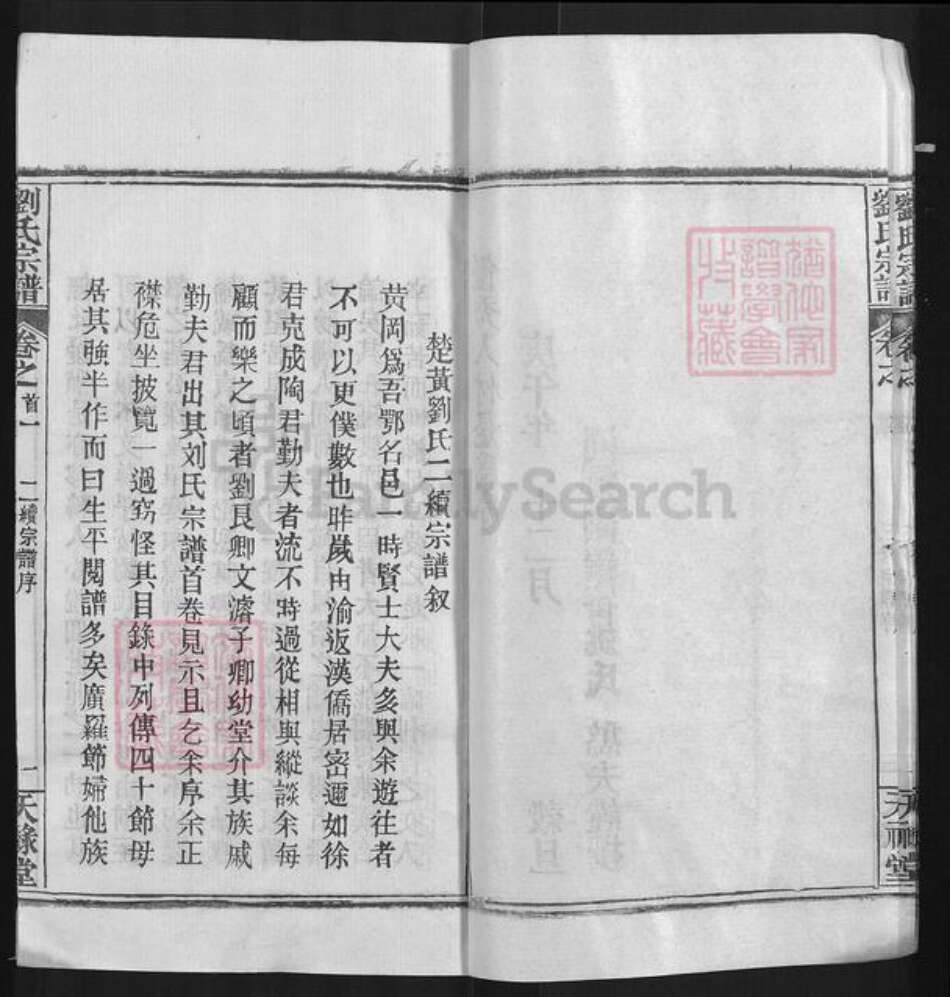 劉氏宗譜
卷之
天祿堂
譜學會
收藏
楚黃劉氏二續宗譜叙
黄岡爲吾鄂名邑一時賢士大夫多與余遊往者
不可以更僕數也昨歲由渝返漢僑居密邇如徐
君克成陶君勤夫者流不時過從相與縱談余每
顧而樂之頃者劉艮卿文濬子卿幼堂介其族戚
勤夫君出其刘氏宗譜首卷見示且乞余序余正
襟危坐披覽一過窃怪其目錄中列傳四十節母
居其強半作而曰生平閱譜多矣廣羅節婦他族
劉氏宗譜
卷之首一
二續宗譜序
一
天祿堂
FamilySearch